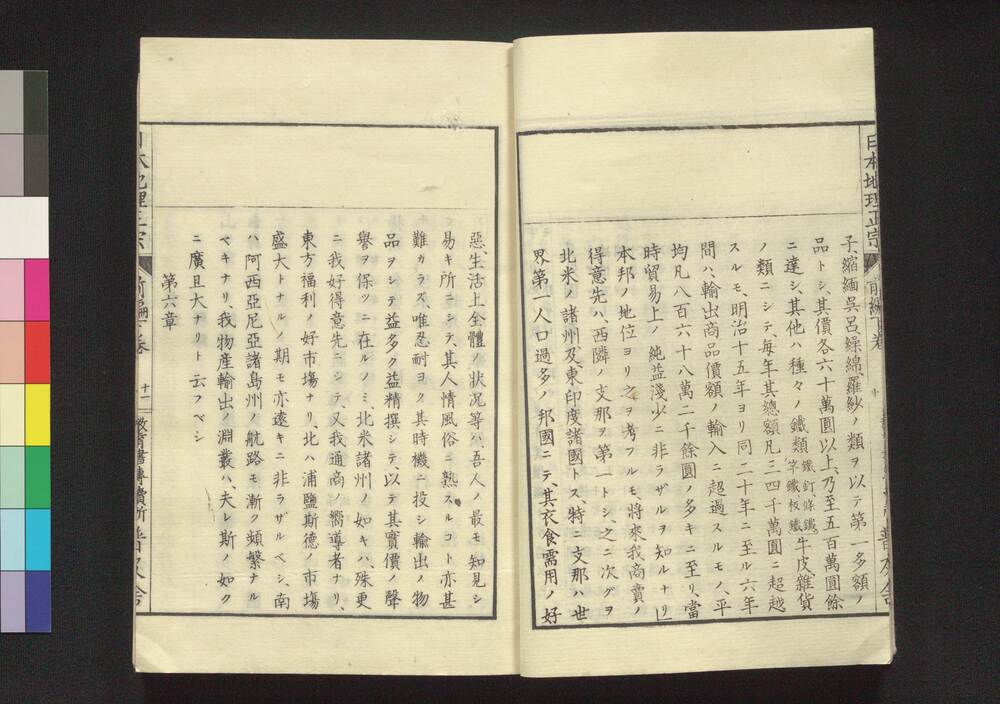 日本地理正宗 前編下巻
子、縮緬呉呂繰綿、羅紗ノ類ヲ以テ第一多額ノ
品トシ、其價各六十萬圓以上、乃至五百萬圓餘
ニ達シ、其他ハ種々ノ鐵類鐵釘、條鐵、竿鐵板鐵牛皮、雜貨
ノ類ニシテ、毎年其總額凡三四千萬圓ニ超越
スルモ、明治十五年ヨリ同二十年ニ至ル六年
間ハ、輸出商品價額ノ輸入ニ超過スルモノ、平
均凡八百六十八萬二千餘圓ノ多キニ至リ、當
時貿易上ノ純益淺少ニ非ラザルヲ知ルナリ」
本邦ノ地位ヨリ之ヲ考フルモ、將來我商賣ノ
得意先ハ、西隣ノ支那ヲ第一トシ、之ニ次グヲ
北米ノ諸州及東印度諸國トス、特ニ支那ハ世
界第一人口過多ノ邦國ニテ、其衣食需用ノ好
惡、生活上全體ノ状况等ハ、吾人ノ最モ知見シ
易キ所ニシテ、其人情風俗ニ熟スルコト亦甚
難カラズ、唯忍耐ヨク其時機ニ投シ輸出ノ物
品ヲシテ益多ク益精撰シテ、以テ其實價ノ聲
譽ヲ保ツニ在ルノミ、北米諸州ノ如キハ、殊更
ニ我好得意先ニシテ、又我通商ノ嚮導者ナリ、
東方福利ノ好市塲ナリ、北ハ浦鹽斯德ノ市塲
盛大トナルノ期モ亦遠キニ非ラザルベシ、南
ハ、阿西亞尼亞諸島州ノ航路モ漸ク頻繁ナル
ベキナリ、我物産輸出ノ淵叢ハ、夫レ斯ノ如ク
ニ廣且大ナリト云フベシ
第六章
日本地理正宗 前編下巻 十一 教育書專賣所 普及舍